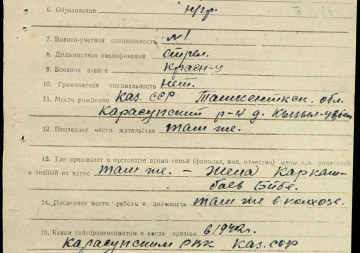 6. Образование н/гр.
7. Военно-учетная специальность №1
8. Должностная квалификация стрел.
9. Военное звание Красн-ц
10. Гражданская специальность нет.
11. Место рождения Каз. ССР Ташкентск. обл.
Карасуйский р-н д.
12. Последнее место жительства там же.
13. Где проживает в настоящее время семья (фамилия, имя, отчество) жены или родителей
и точный их адрес там же. – Жена Каркаш-
баев Биbe.
14. Последнее место работы и должность там же в колхозе.
15. Каким райвоенкоматом и когда призван 6/1942 г.
Карасуйским РВК Каз. ССР